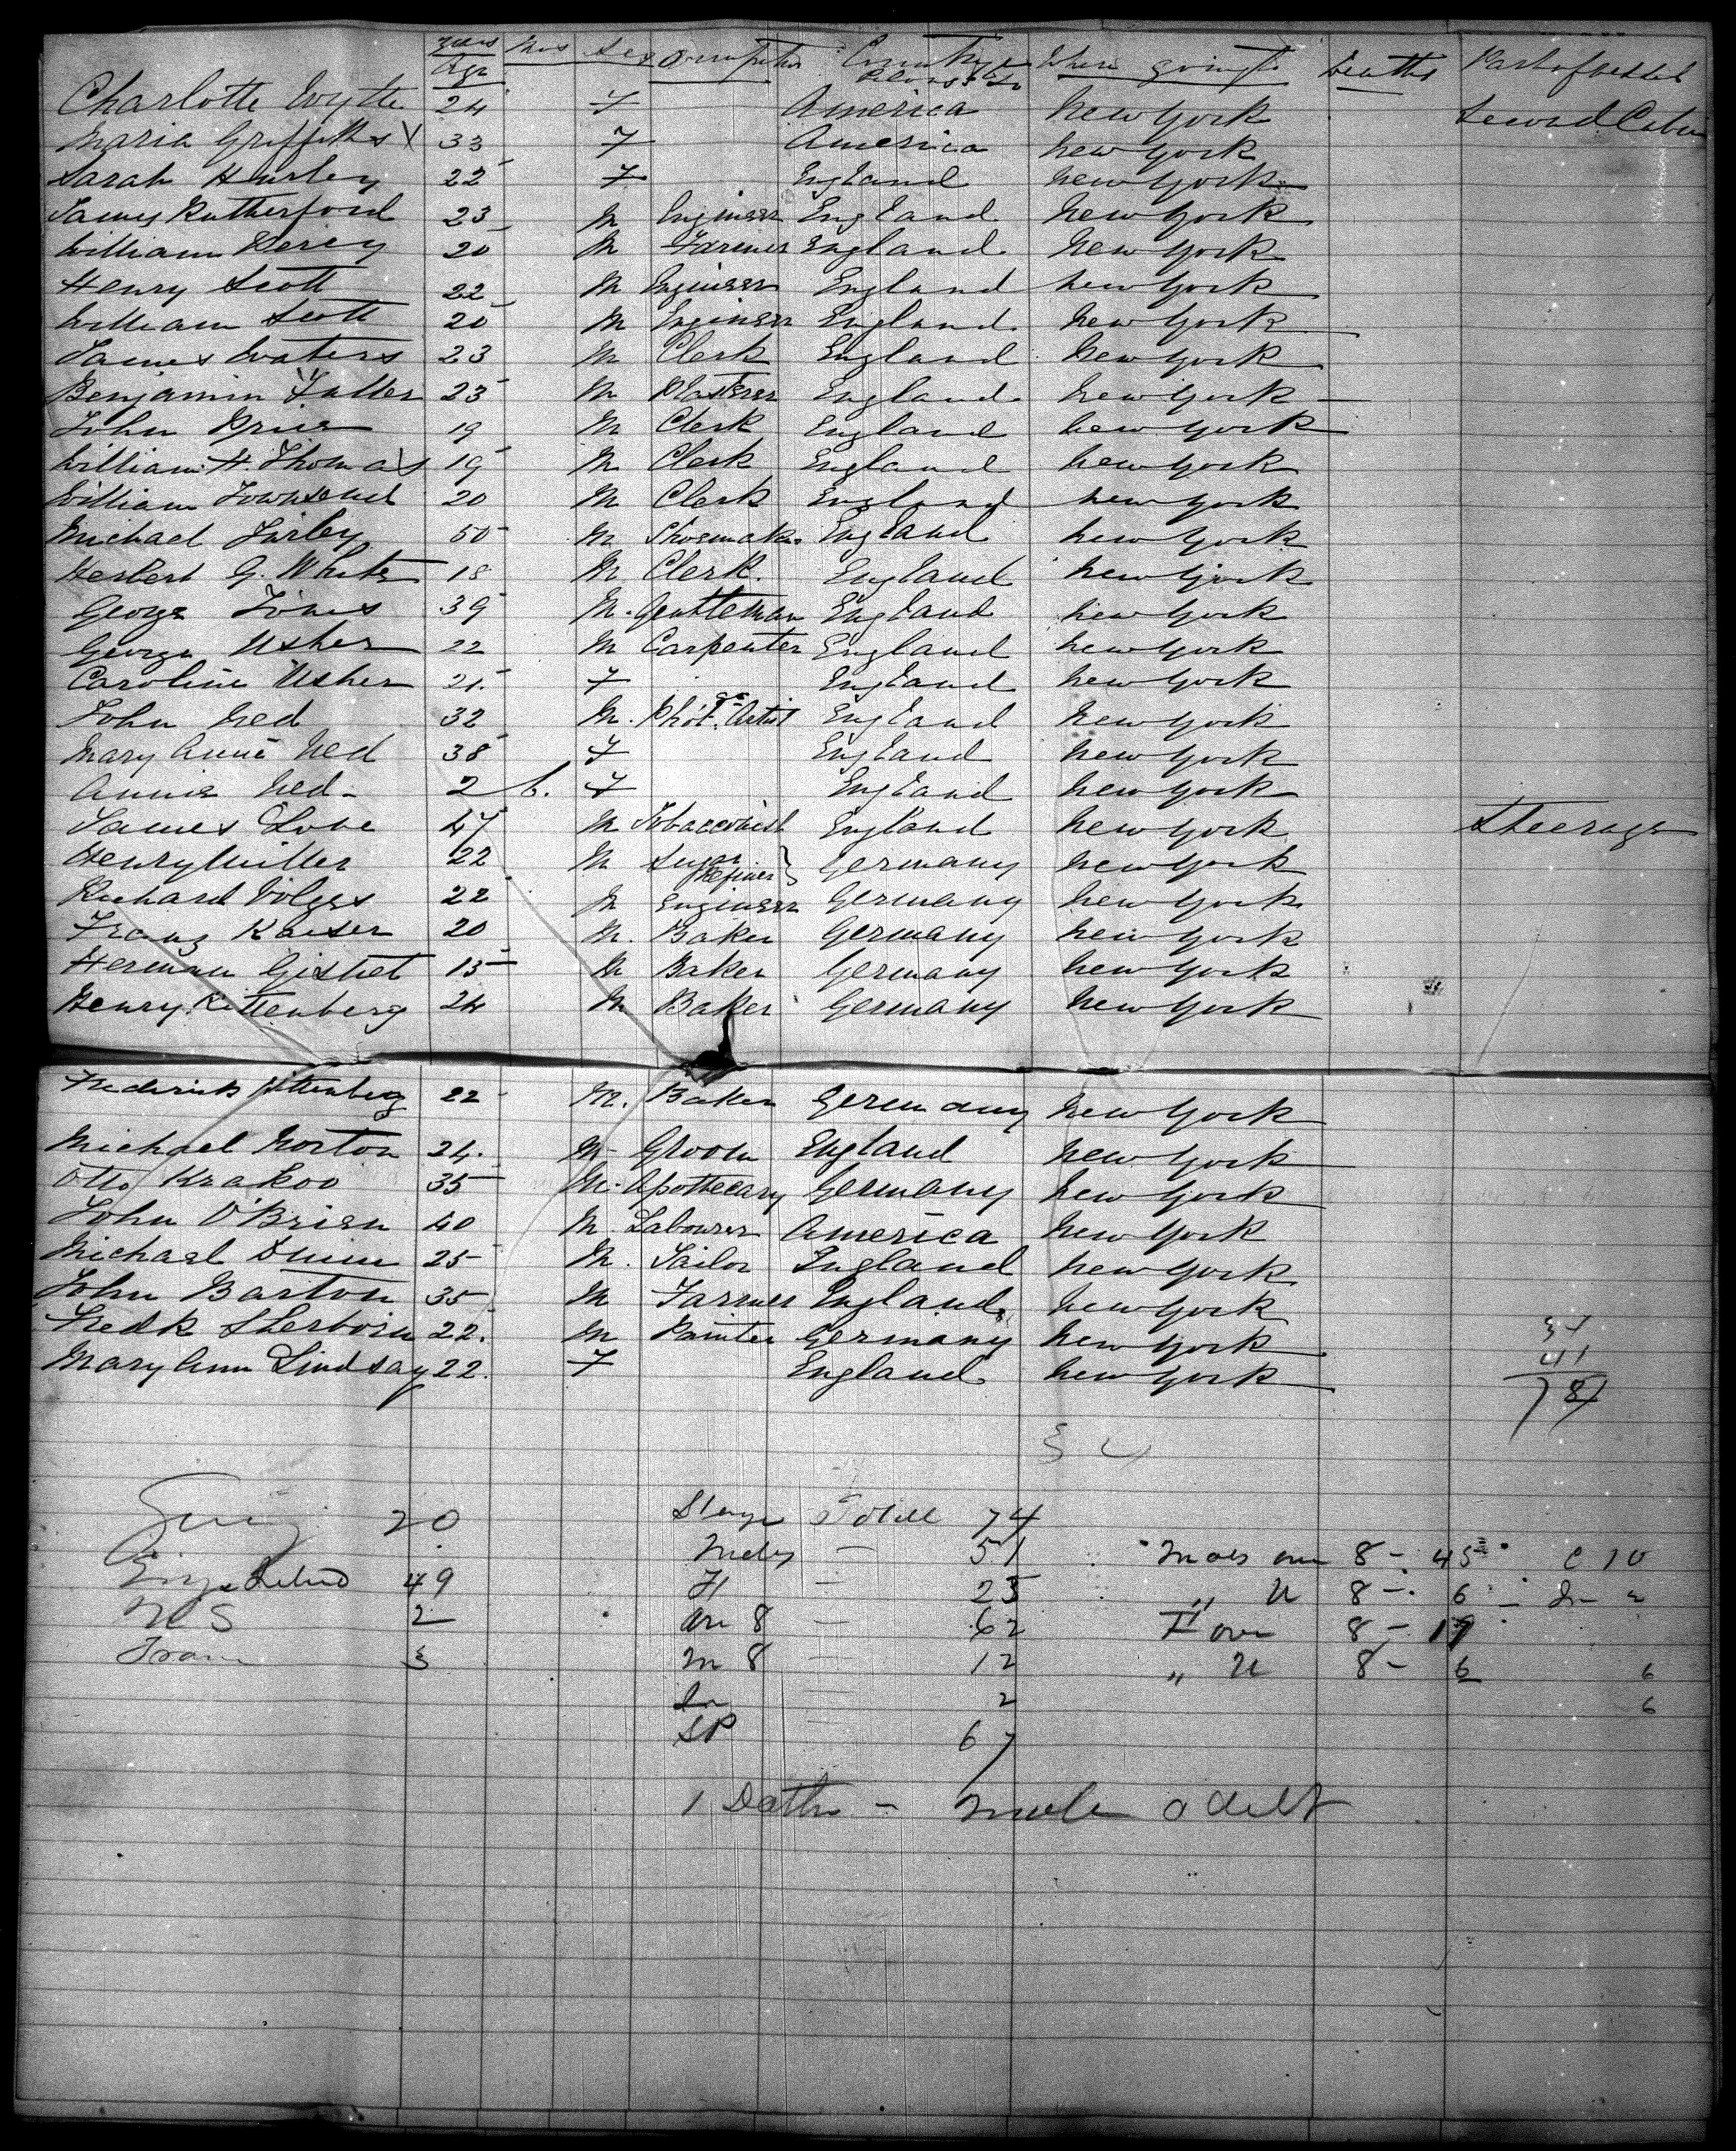 Years Age Mos Sex Occupation Country Belongs to Where going to Deaths Part of vessel
Charlotte Wytte 24 F America New York Second Cabin
Maria Griffiths X 33 F America New York
Sarah Hurley 22 F England New York
James Rutherford 23 M Engineer England New York
William Percy 20 M Farmer England New York
Henry Scott 22 M Engineer England New York
William Scott 20 M Engineer England New York
James Waters 23 M Clerk England New York
Benjamin Fuller 23 M Plasterer England New York
John Price 19 M Clerk England New York
William H Thomas 19 M Clerk England New York
William Townsend 20 M Clerk England New York
Michael Furley 50 M Shoemaker England New York
Herbert G. White 18 M Clerk England New York
George Jones 39 M. Gentleman England New York
George Usher 22 M Carpenter England New York
Caroline Usher 21. F England New York
John Ned 32 M. Phot. Artist England New York
Mary Anne Ned 38 F England New York
Annie Ned 2 6. F England New York
James Love 47 M Tobacconist England New York Steerage
Henry Miller 22 M Sugar Refiner } Germany New York
Richard Volges 22 M Engineer Germany New York
Franz Kaiser 20 M. Baker Germany New York
Herman Gishet 15 M Baker Germany New York
Henry Kittenberg 24 M Baker Germany New York
Frederick Kittenberg 22 M. Baker Germany New York
Michael Norton 24. M Groom England New York
Otto Krakoo 35 M. Apothecary Germany New York
John O'Brien 40 M Labourer America New York
Michael Dunn 25 M. Tailor England New York
John Barton 35 M Farmer England New York
Fredk Sterborn 22. M Painter Germany New York
Mary Ann Lindsay 22. F England New York
34
41
Germ 20 Steerage Total 74
Males – 51 Males over 8 – 45 C 10
49 F – 23 " U 8 – 6
U S 2 over 8 – 62 F over 8 – 17
3 un 8 – 12 " U 8 – 6 6
In 2 6
SP 67
1 Death – male adult